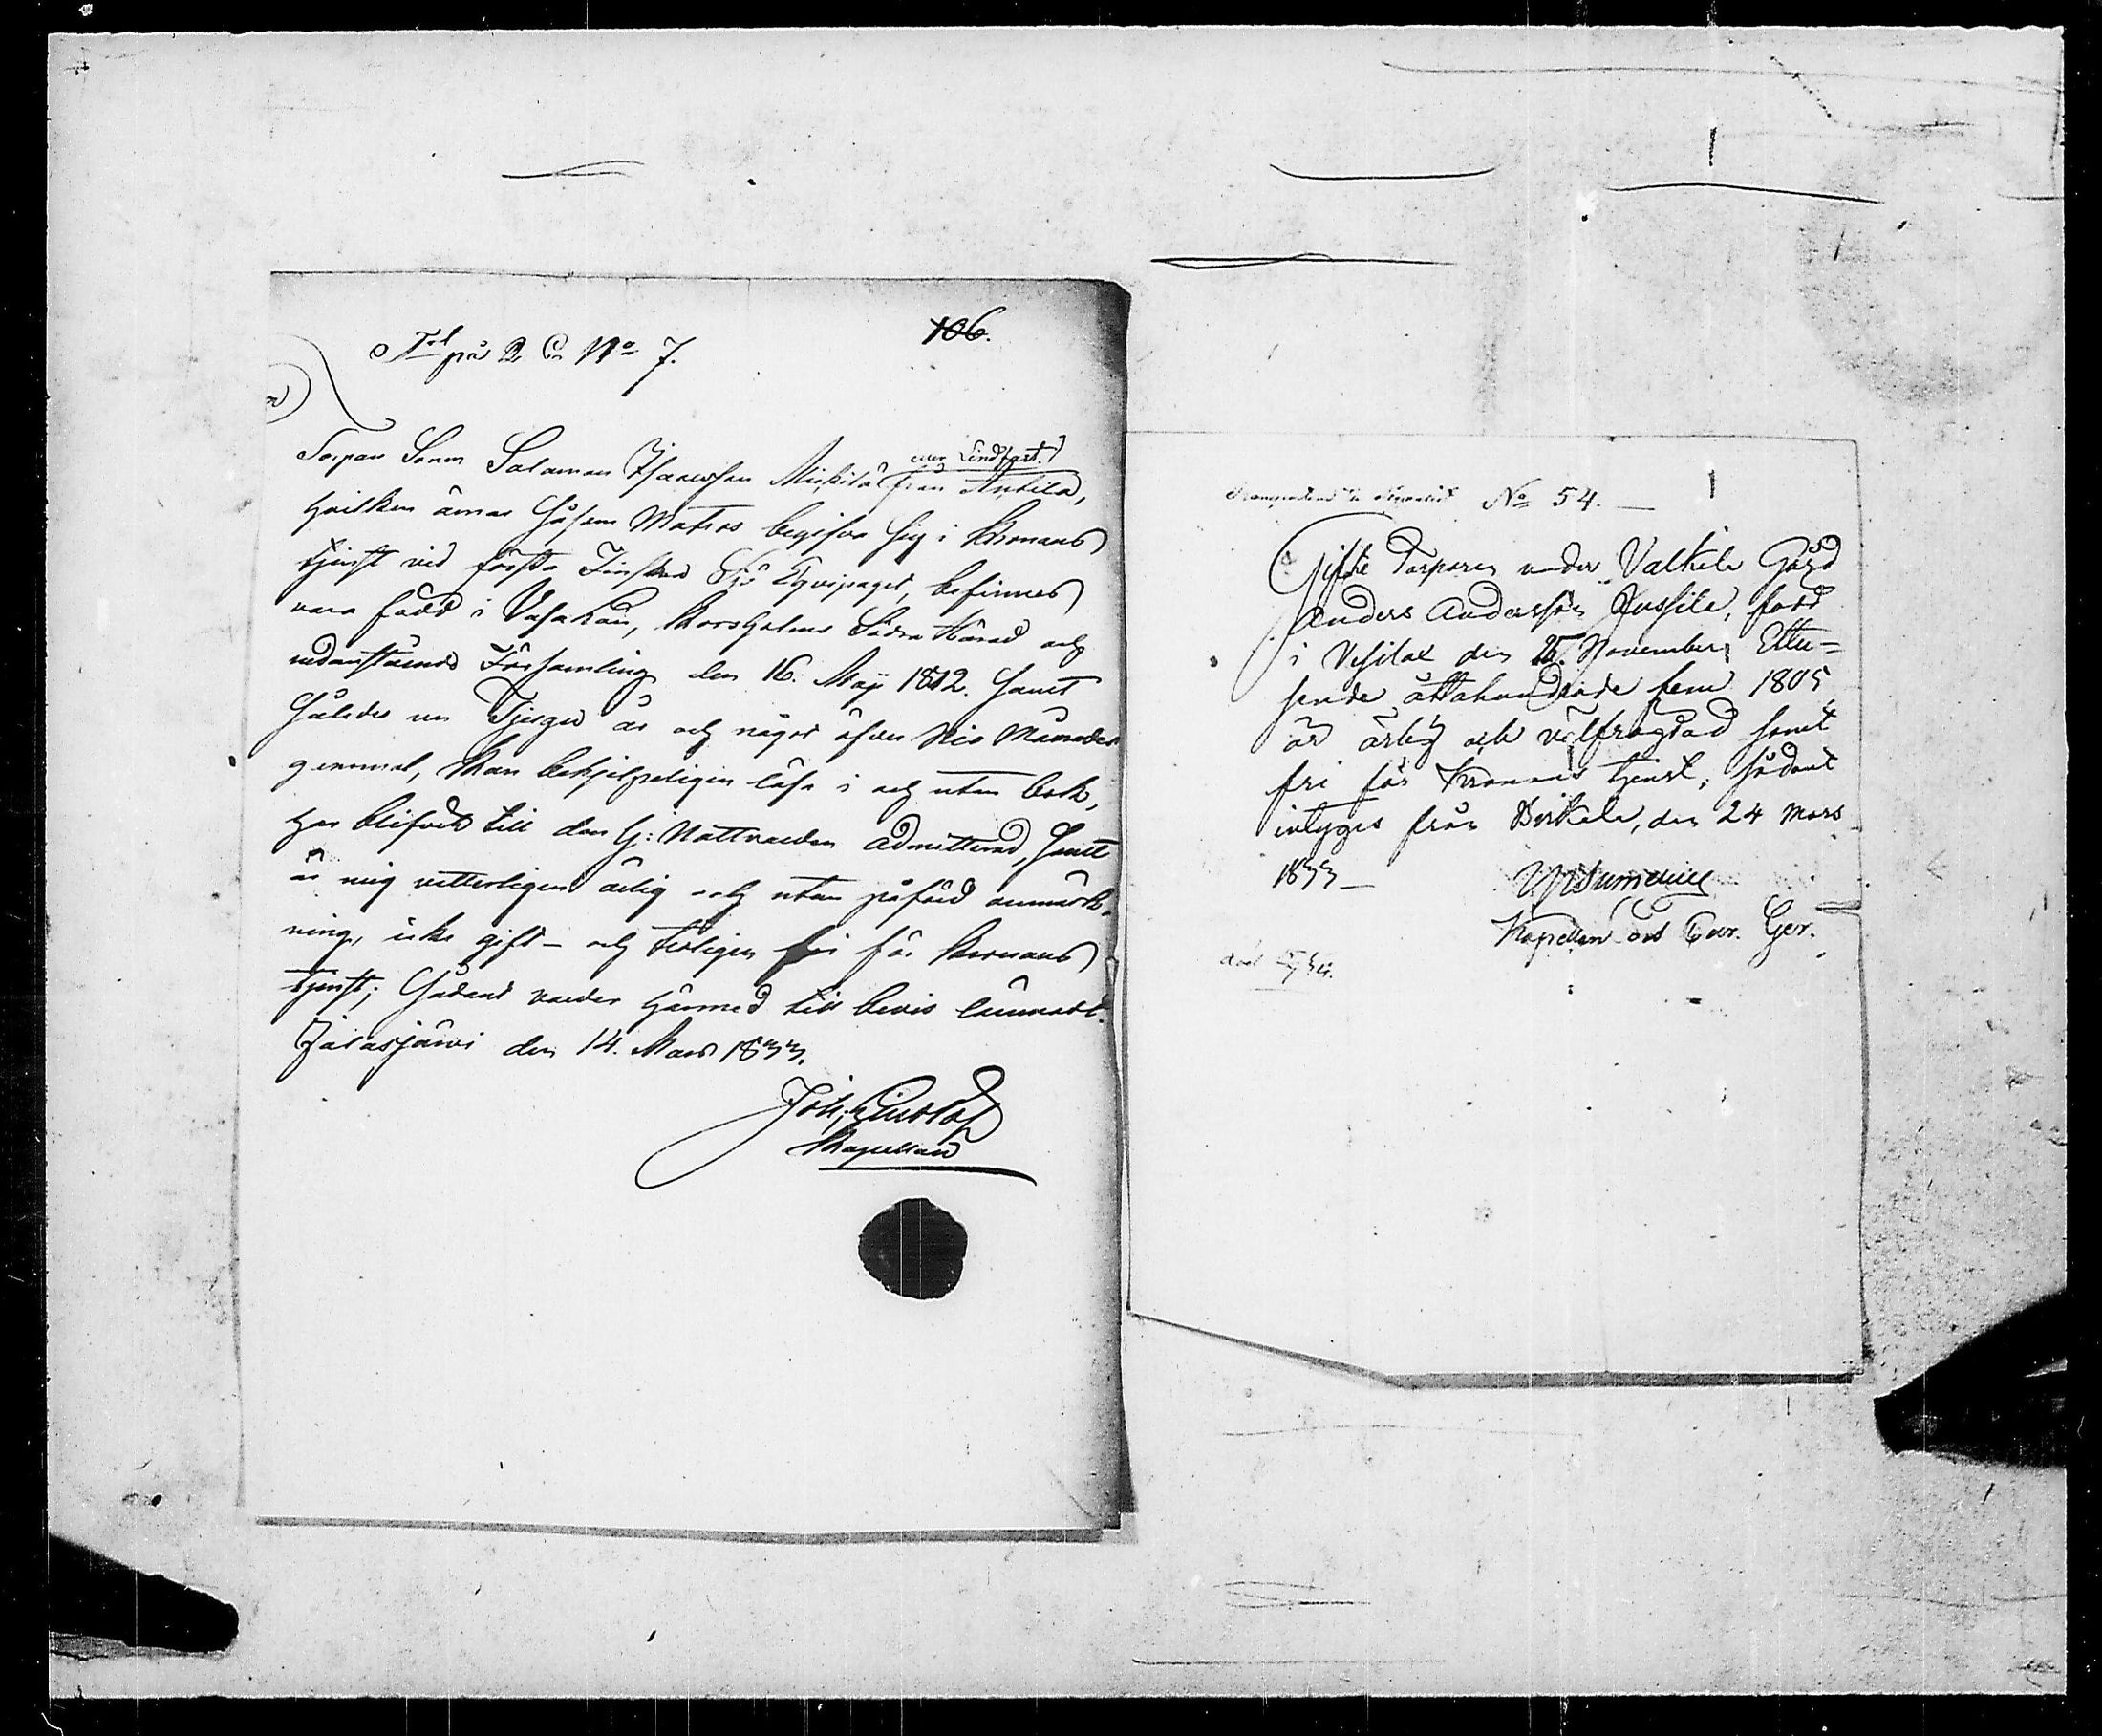 106.
på 2 C. No 7.
eller Lindqvist.
Torpare Sonen Salamon Isaacsson Mickila från Antila,
hvilken ämnar såsom Matros begifva sig i Kronans
tjenst vid första Finska Sjö Eqvipaget, befinnes
vara född i Vasa Län, Korsholms Södra Härad och
nedanstående Församling den 16. Maji 1812. samt
således nu Tjugo år och något öfver Nio Månader
gammal, kan behjelpeligen läsa i och utan bok,
har blifvit till den H: Nattvarden admitterad, samt
är mig vetterligen ärlig och utan påförd anmärk-
ning, icke gift - och ledigen fri för Kronans
tjenst; Sådant varder härmed till bevis lämnadt.
Jalasjärvi den 14. Mars 1833.
Joh. Gustaf
Kapellan
No 54.
Gifte Torparen under Valkila Gård
Anders Andersson Jussila, född
i Vesilax den 25. November Ettu-
sende åttahundrade fem 1805
är ärlig och välfrägdad samt
fri för Kronans tjenst; sådant
intygas från Birkala, den 24 Mars
1833
Kapellan
död